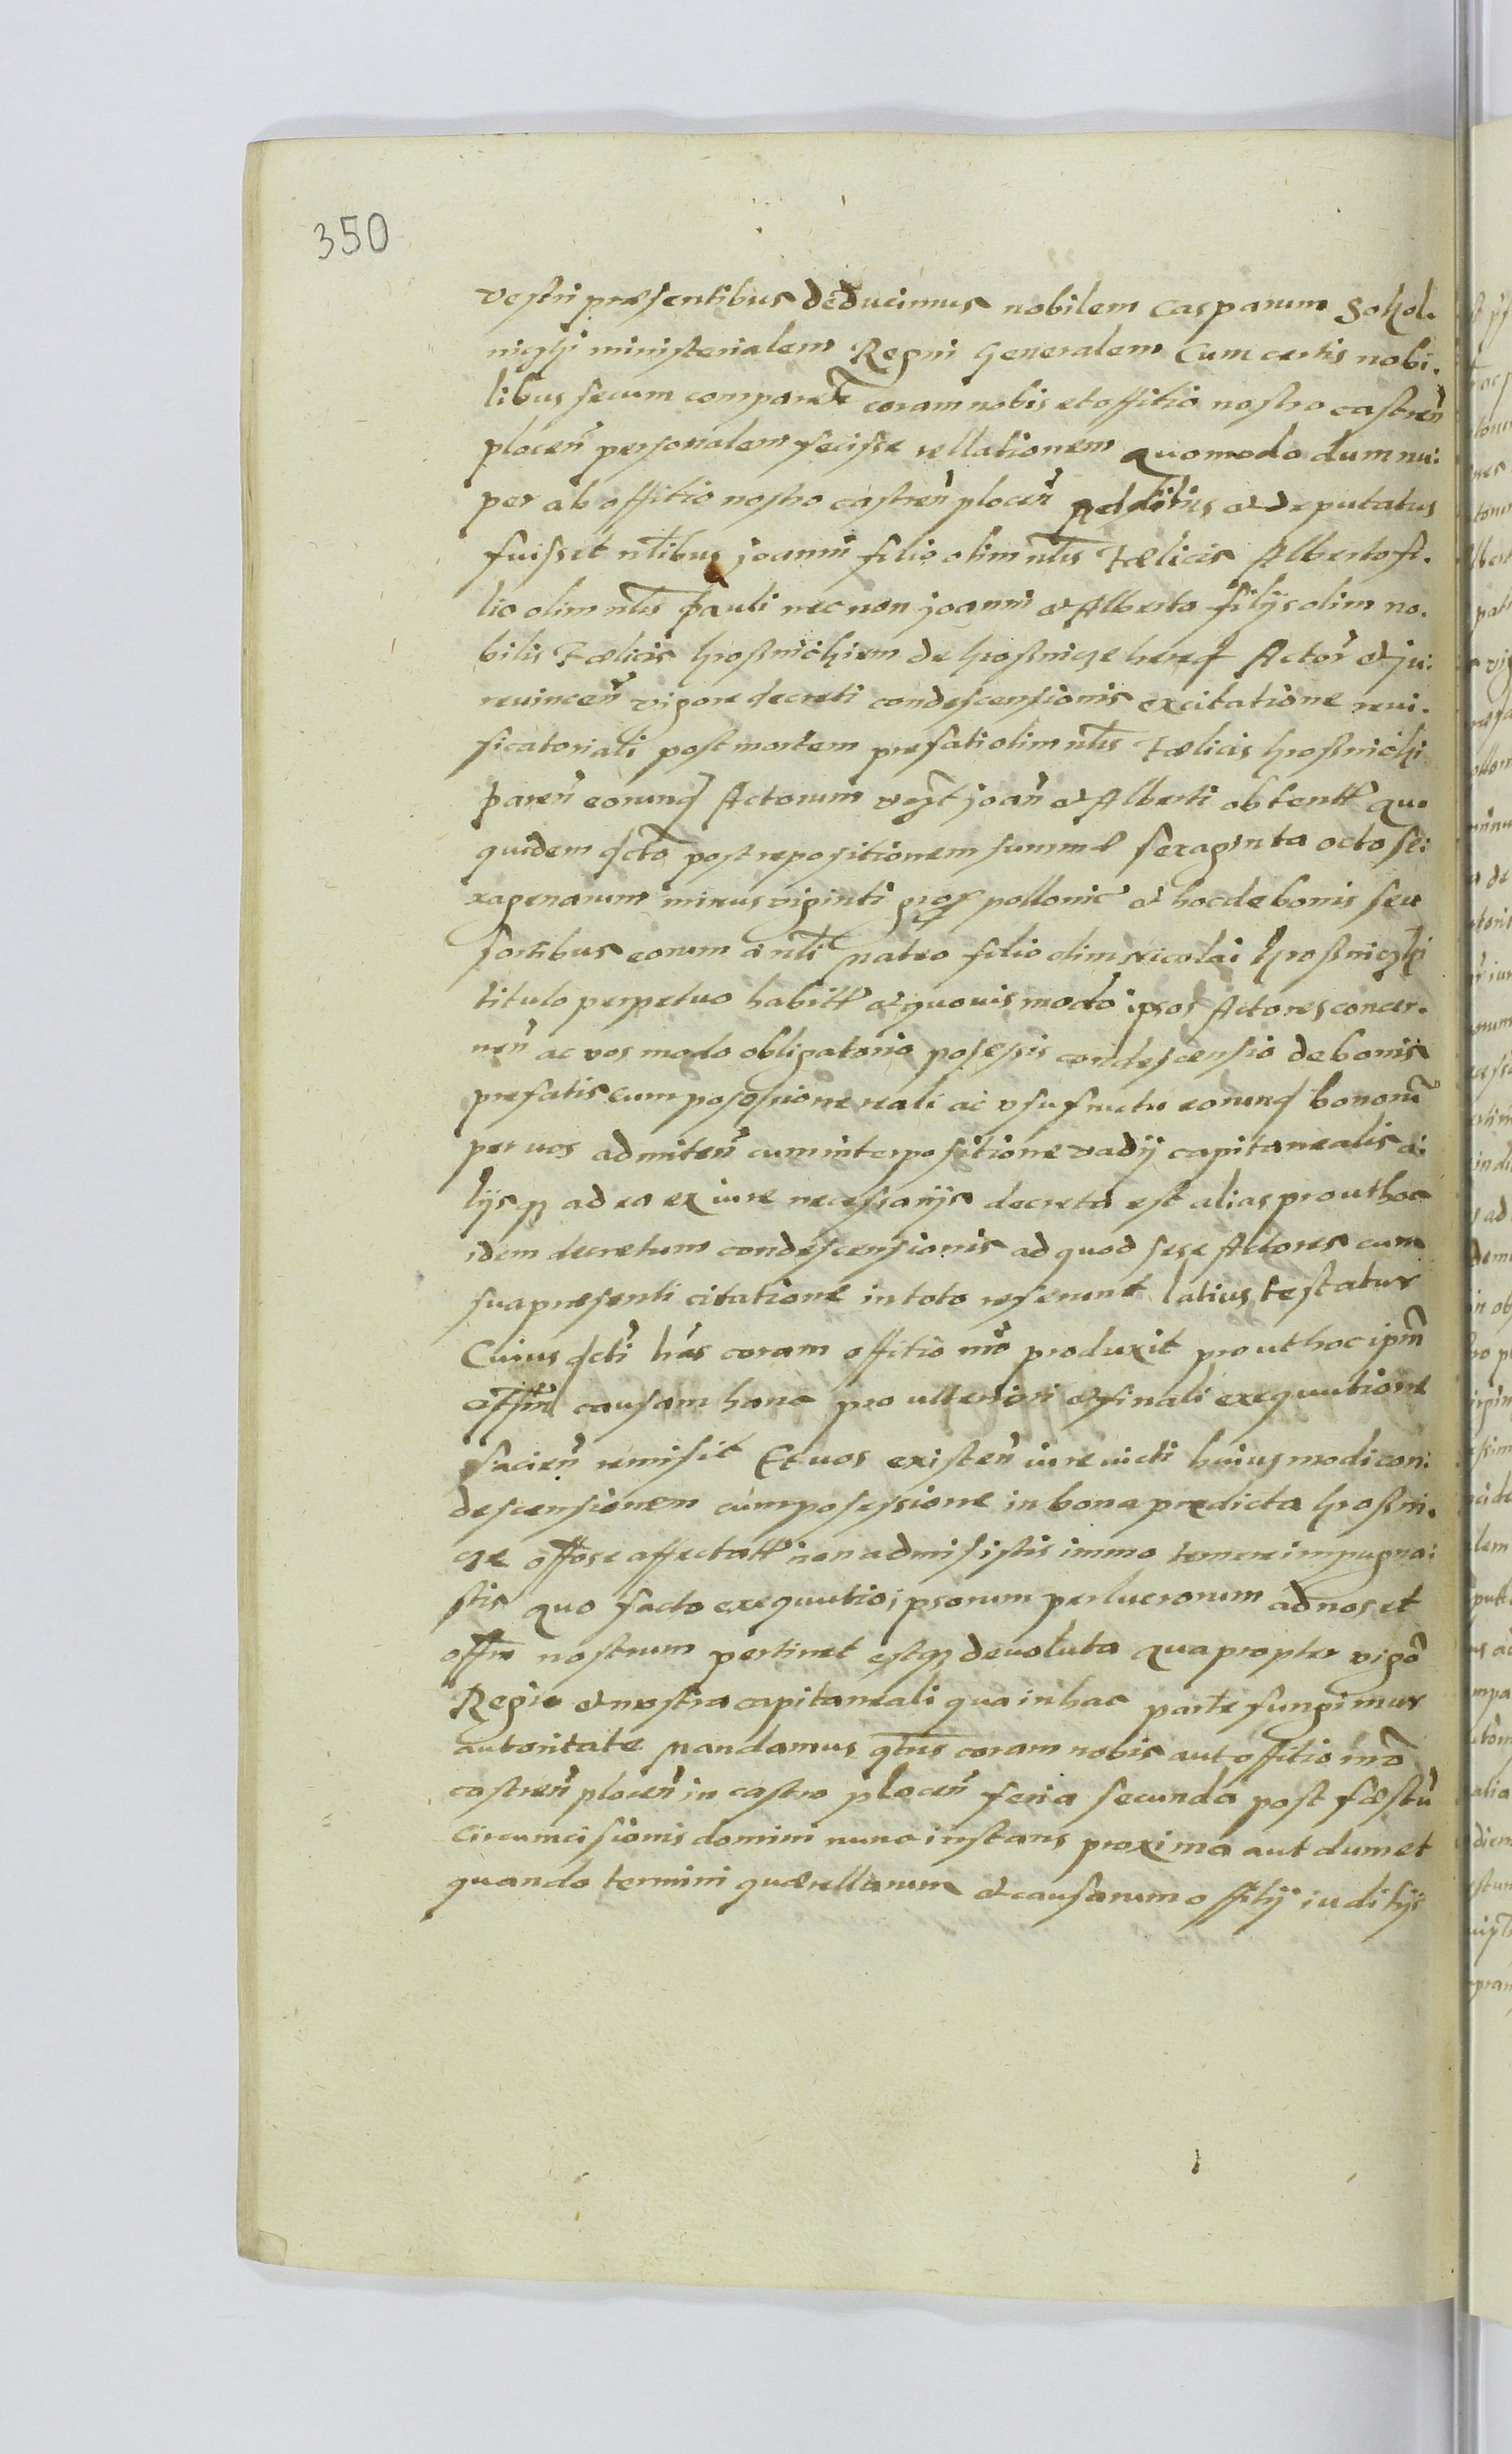 350
vestri præsentibus deducimus nobilem Casparum Sokol.
niczki ministerialem Regni Generalem Cum certis nobi.
libus secum comparen̄ coram nobis et offitio nostro castren̄
plocen̄ personalem fecisse rellationem Quomodo dum nu:
per ab offitio nostro castren̄ plocen̄ Additus et deputatus
fuisset nłibus Joanni filio olim nłis Fælicis Alberto fi.
lio olim nłis Pauli nec non Joanni et Alberto filijs olim no.
bilis Fælicis kroßnickiem de kroßnicze hered Actor̄ et ju:
revincen̄ vigore decreti condescensionis ex citatione rei.
ficatoriali post mortem prefati olim nłis Fælicis kroßnicki
Paren̄ eorund Actorum Joan̄ et Alberti obtentt quo
quidem dcto post repositionem summæ sexaginta octo se:
xagenarum minus viginti gros pollonic et hoc de bonis seu
sortibus eorum a nłi Mateo filio olim Nicolai kroßniczki
titulo perpetuo habitt et quovismodo ipsos Actores concer.
nen̄ ac vos modo obligatorio possessis condescensio de bonis
prefatis cum possessione reali ac usufructu eorund bonorū
per vos admiten̄ cum interpositione vadij capitanealis a:
lijsq ad ea ex iure necessarijs decreta est alias prout hoc
idem decretum condescensionis ad quod sese Actores cum
sua presenti citatione in toto referunt latius testatur
Cuius dcti lr̄as coram offitio nr̄o produxit prout hoc ipm̄
offm̄ causam hanc pro ulteriori et finali exequutione
facien̄ remisit Et vos existen̄ iure victi huiusmodi con:
descensionem cum possessione in bona predicta kroßni.
cze offose affectatt non admisistis immo temere impugna:
stis quo facto exequutio ipsorum perlucrorum ad nos et
offm nostrum pertinet estq devoluta Quapropter vigō
Regia et nostra capitaneali qua in hac parte fungimur
autoritate Mandamus qtns coram nobis aut offitio nr̄o
castren̄ plocen̄ in castro plocen̄ feria secunda post fæstū
Circumcisionis domini nunc instans proxima aut dum et
quando termini quærellarum et causarum offitij iuditijs